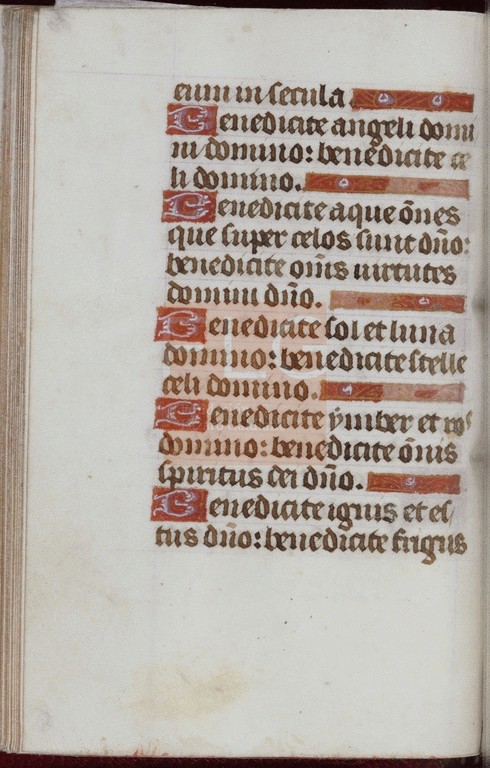 eum in secula.
Benedicite angeli domi
ni domino: benedicite ce
li domino.
Benedicite aque om̄es
que super celos sunt dn̄o:
benedicite om̄is uirtutes
domini dn̄o.
Benedicite sol et luna
domino: benedicite stelle
celi domino.
Benedicite ymber et ros
domino: benedicite om̄is
spiritus dei dn̄o.
Benedicite ignis et es
tus dn̄o: benedicite frigus